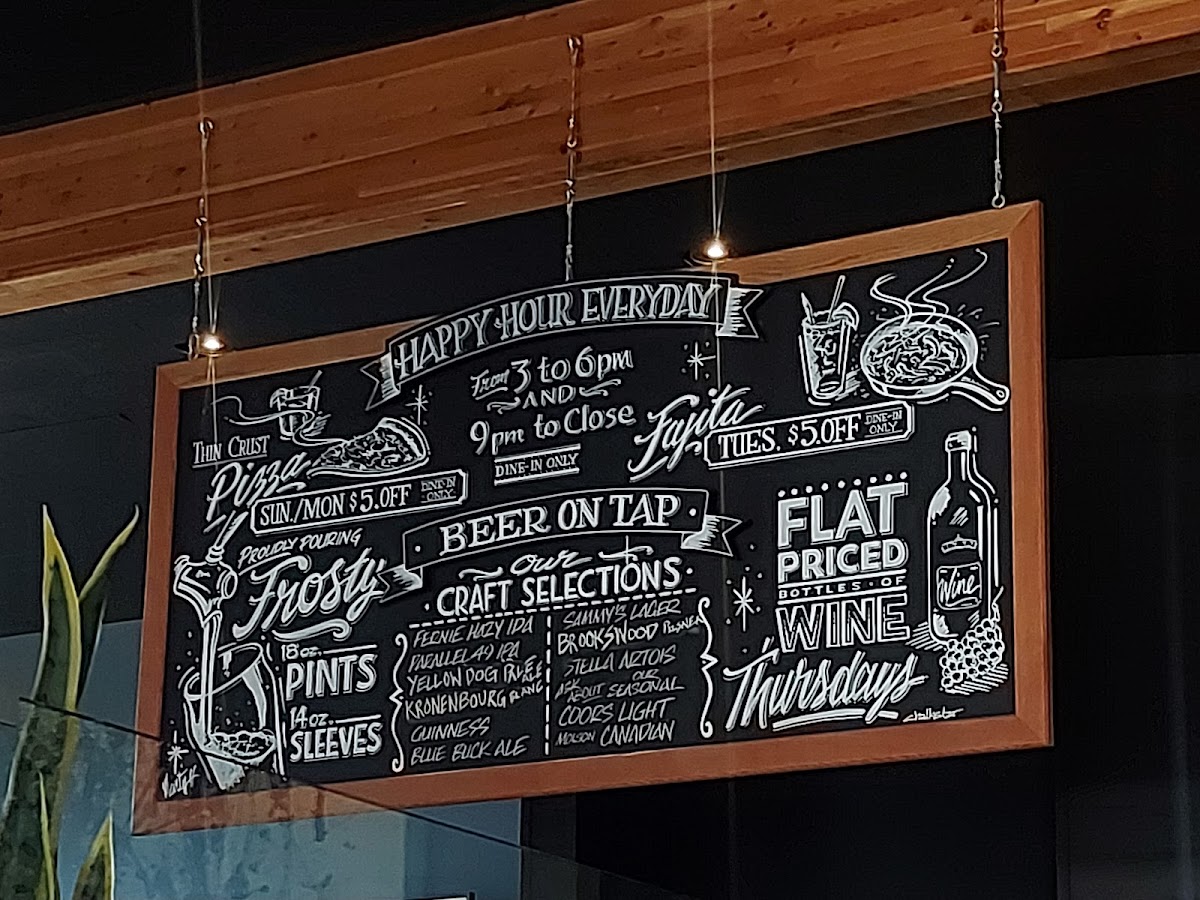 HAPPY HOUR EVERYDAY
From 3 to 6pm
AND
9pm to Close
DINE-IN ONLY
THIN CRUST
Pizza
SUN./MON $5.OFF DINE-IN ONLY
Fajita
TUES. $5.OFF DINE-IN ONLY
PROUDLY POURING
Frosty
18 oz.
PINTS
14 oz.
SLEEVES
BEER ON TAP
our
CRAFT SELECTIONS
FERNIE HAZY IPA
PARALLEL 49 IPA
YELLOW DOG PALE ALE
KRONENBOURG BLANC
GUINNESS
BLUE BUCK ALE
SAMMY'S LAGER
BROOKSWOOD PILSNER
STELLA ARTOIS
ASK ABOUT OUR SEASONAL
COORS LIGHT
MOLSON CANADIAN
FLAT
PRICED
BOTTLES OF
WINE
Thursdays
Wine